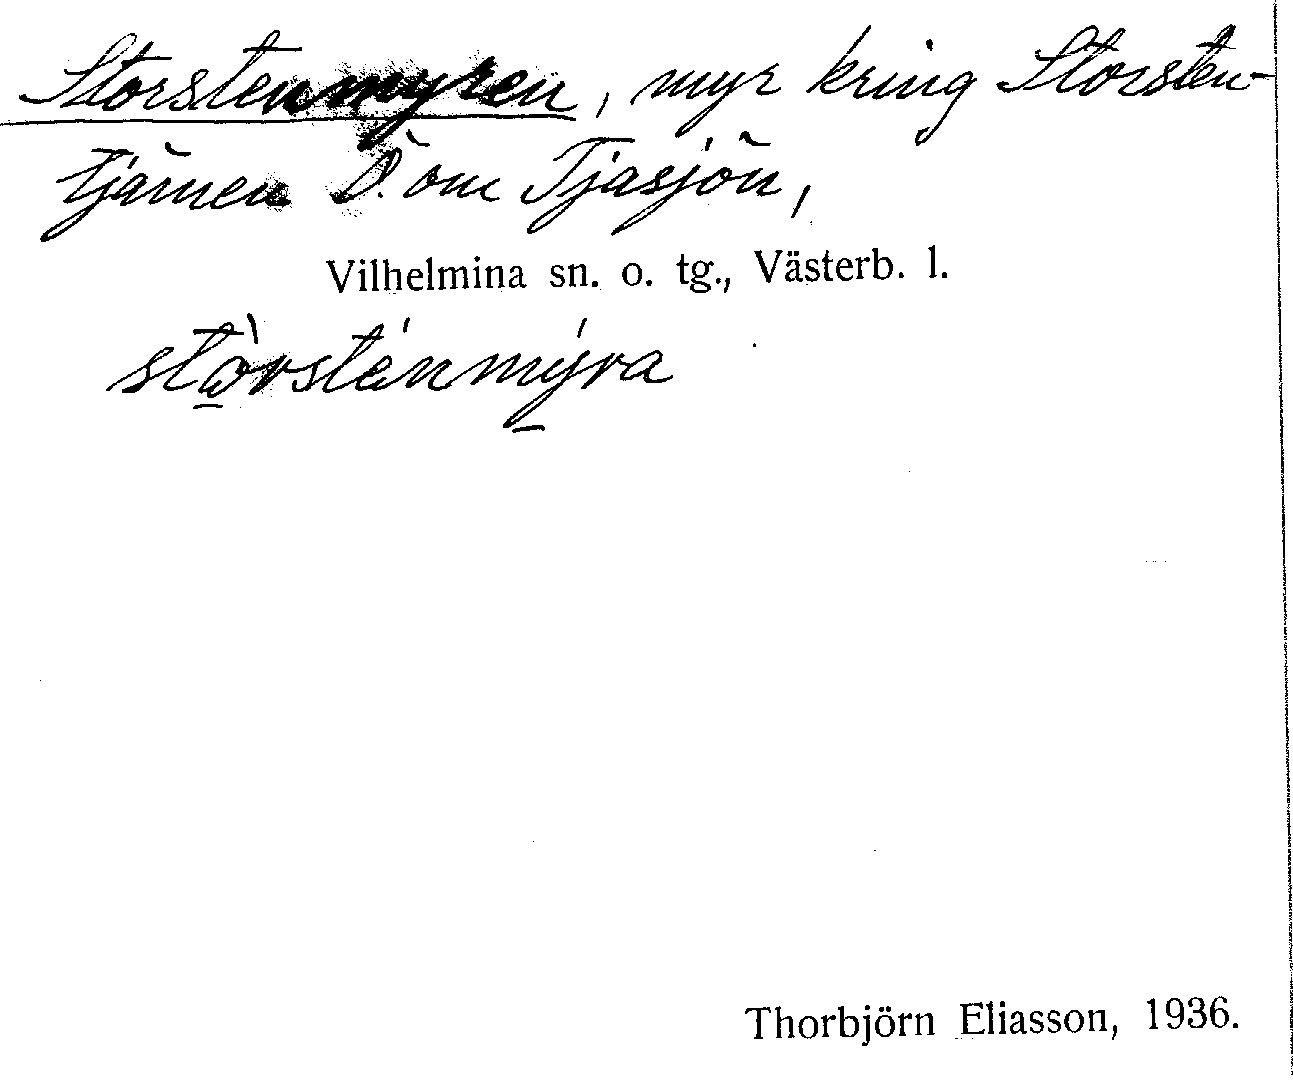 Storstenmyren, myr kring Storsten-
tjärnen Ö. om Tjasjön,
Vilhelmina sn. o. tg., Västerb. l.
stò̱rsténmý̱ra
Thorbjörn Eliasson, 1936.